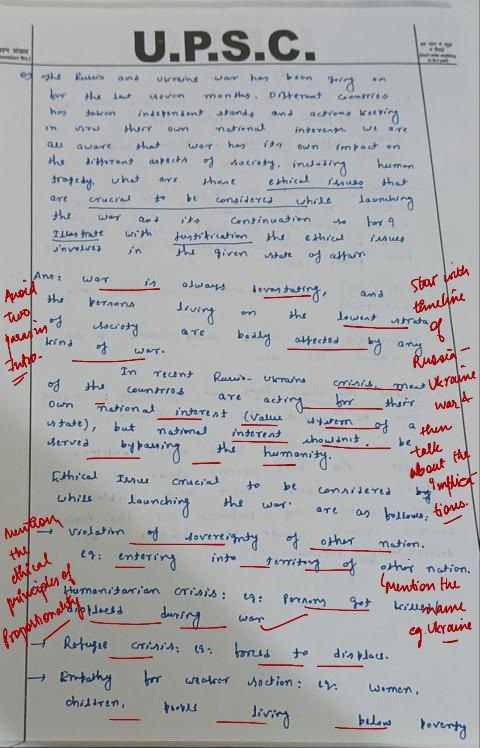 U.P.S.C.
Q) The Russia and Ukraine war has been going on
for the last seven months. Different countries
has taken independent stands and actions keeping
in view their own national interest. We are
all aware that war has its own impact on
the different aspects of society, including human
tragedy. What are those ethical issues that
are crucial to be considered while launching
the war and its continuation so far?
Illustrate with justification the ethical issues
involved in the given state of affair.
Ans: War is always devastating, and
the persons living on the lowest strata
of society are badly affected by any
kind of war.
Avoid
two
paras in
Intro.
Start with
timeline
of
Russia-
Ukraine
war &
then
talk
about the
implica-
tions.
In recent Russia-Ukraine crisis, most
of the countries are acting for their
own national interest (value system of a
state), but national interest shouldn't be
served bypassing the humanity.
Ethical Issue crucial to be considered
while launching the war. are as follows:
→ Violation of sovereignty of other nation.
eg: entering into territory of other nation.
Mention
the
ethical
principles of
Proportionality
Humanitarian crisis: eg: Persons got killed
displaced during war
(Mention the
same
eg Ukraine
→ Refugee crisis: eg: forced to displace.
→ Empathy for weaker section: eg: women,
children, people living below poverty